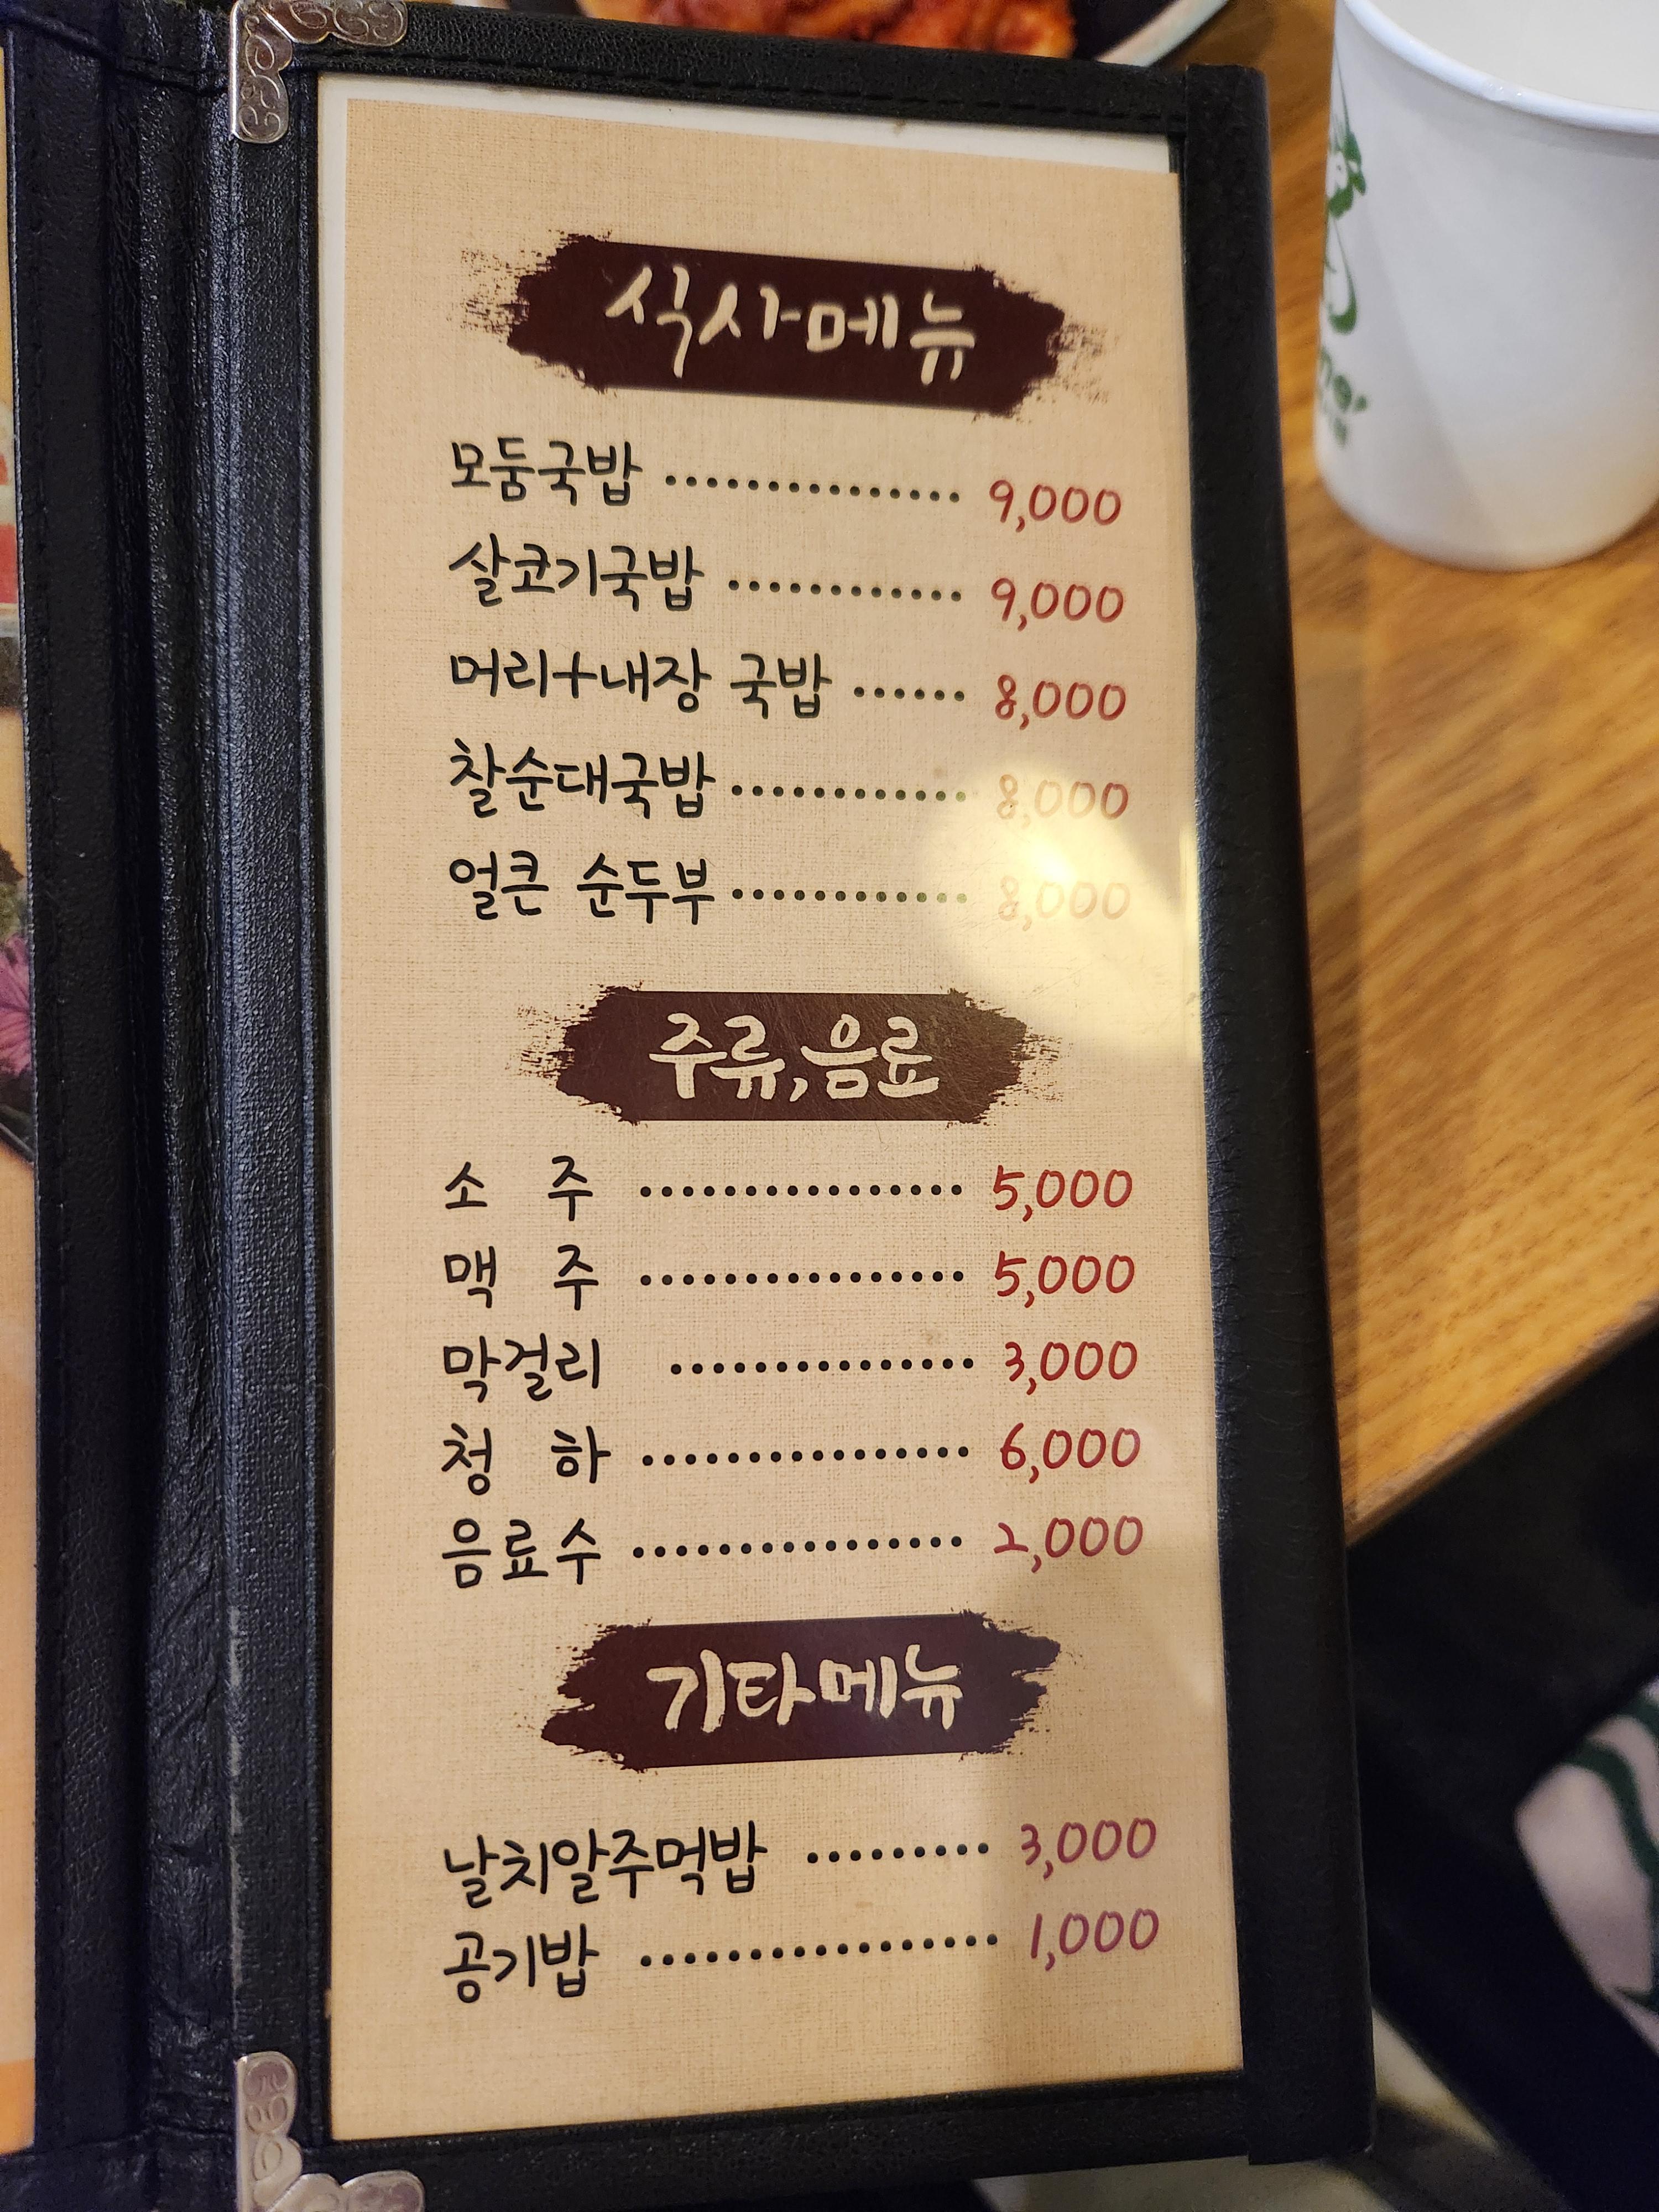 식사메뉴
모둠국밥 ............... 9,000
살코기국밥 ............ 9,000
머리+내장 국밥 ...... 8,000
찰순대국밥 ............ 8,000
얼큰 순두부 ............ 8,000
주류,음료
소 주 ................ 5,000
맥 주 ................ 5,000
막걸리 ............... 3,000
청 하 ................ 6,000
음료수 ................ 2,000
기타메뉴
날치알주먹밥 ......... 3,000
공기밥 ................. 1,000